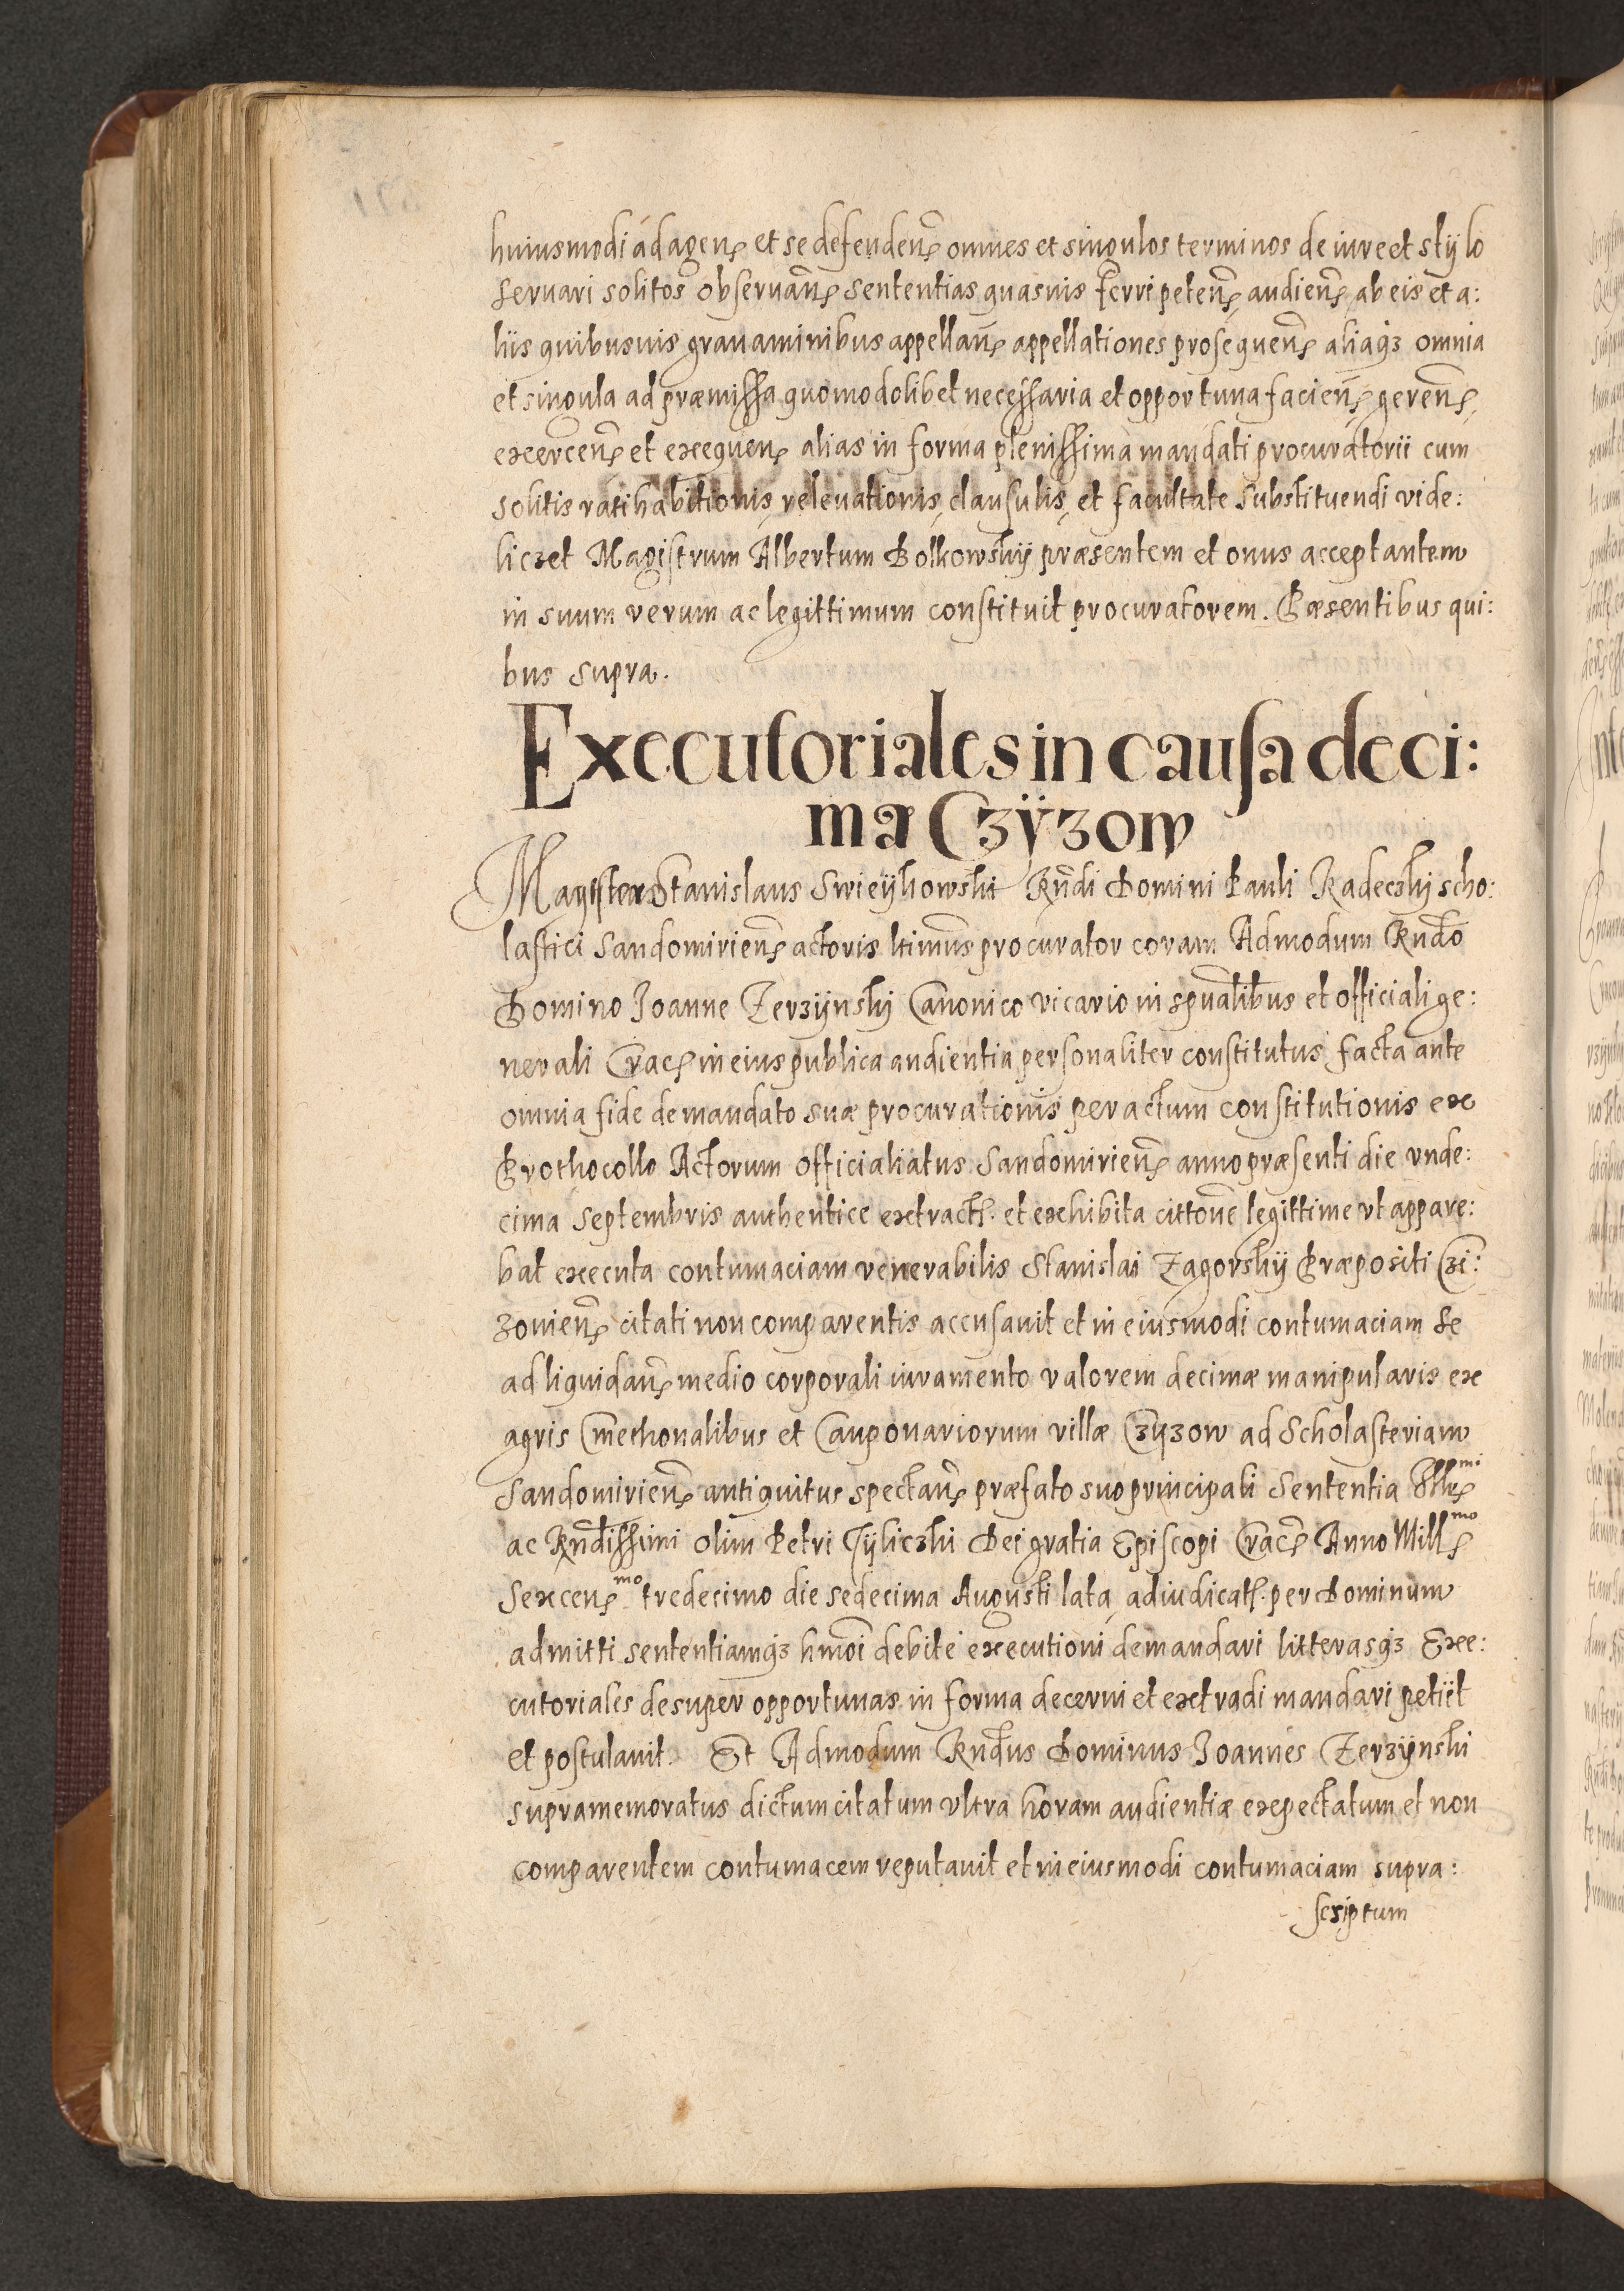 huiusmodi ad agen̄ et se defenden̄ omnes et singulos terminos de iure et stÿlo
servari solitos observan̄ sententias quasvis ferri peten̄, audien̄, ab eis et a:
liis quibusvis gravaminibus appellan̄ appellationes prosequen̄ aliaq₃ omnia
et singula ad præmissa quomodolibet necessaria et opportuna facien̄, geren̄,
exercen̄ et exequen̄ alias in forma plenissima mandati procuratorii cum
solitis ratihabitionis, relevationis, clausulis, et facultate substituendi vide:
liczet Magistrum Albertum Bolkowskÿ præsentem et onus acceptantem
in suum verum ac legittimum constituit procuratorem. Præsentibus qui:
bus supra.
Executoriales in causa deci:
mæ Czÿzow
Magister Stanislaus Swieÿkowski Rn̄di Domini Pauli Radeckÿ scho:
lastici Sandomirien̄ actoris ltimus procurator coram Admodum Rndo
Domino Joanne Zerzÿnskÿ Canonico vicario in spualibus et officiali ge:
nerali Crac̄ in eius publica audientia personaliter constitutus, facta ante
omnia fide de mandato suæ procurationis per actum constitutionis ex
Prothocollo Actorum Officialiatus Sandomirien̄ anno præsenti die vnde:
cima Septembris authentice extract. et exhibita cittone legittime vt appare:
bat executa contumaciam venerabilis Stanislai Zagorskÿ Præpositi Czi:
zovien̄ citati non comparentis accusavit et in eiusmodi contumaciam se
ad liquidan̄ medio corporali iuramento valorem decimæ manipularis ex
agris Cmethonalibus et Cauponariorum villæ Czÿzow ad Scholasteriam
Sandomirien̄ antiquitus spectan̄ præfato suo principali Sententia Illr̄mi
ac Rn̄dissimi olim Petri Tÿliczki Dei gratia Episcopi Crac̄ Anno Mill̄mo
Sexcen̄mo tredecimo die sedecima Augusti lata, adiudicat. per Dominum
admitti sententiamq₃ hmoi debite executioni demandari litterasq₃ Exe:
cutoriales desuper opportunas in forma decerni et extradi mandari petiit
et postulavit. Et Admodum Rndus Dominus Joannes Zerzÿnski
supramemoratus dictum citatum vltra horam audientiæ expectatum et non
comparentem contumacem reputavit et in eiusmodi contumaciam supra:
scriptum